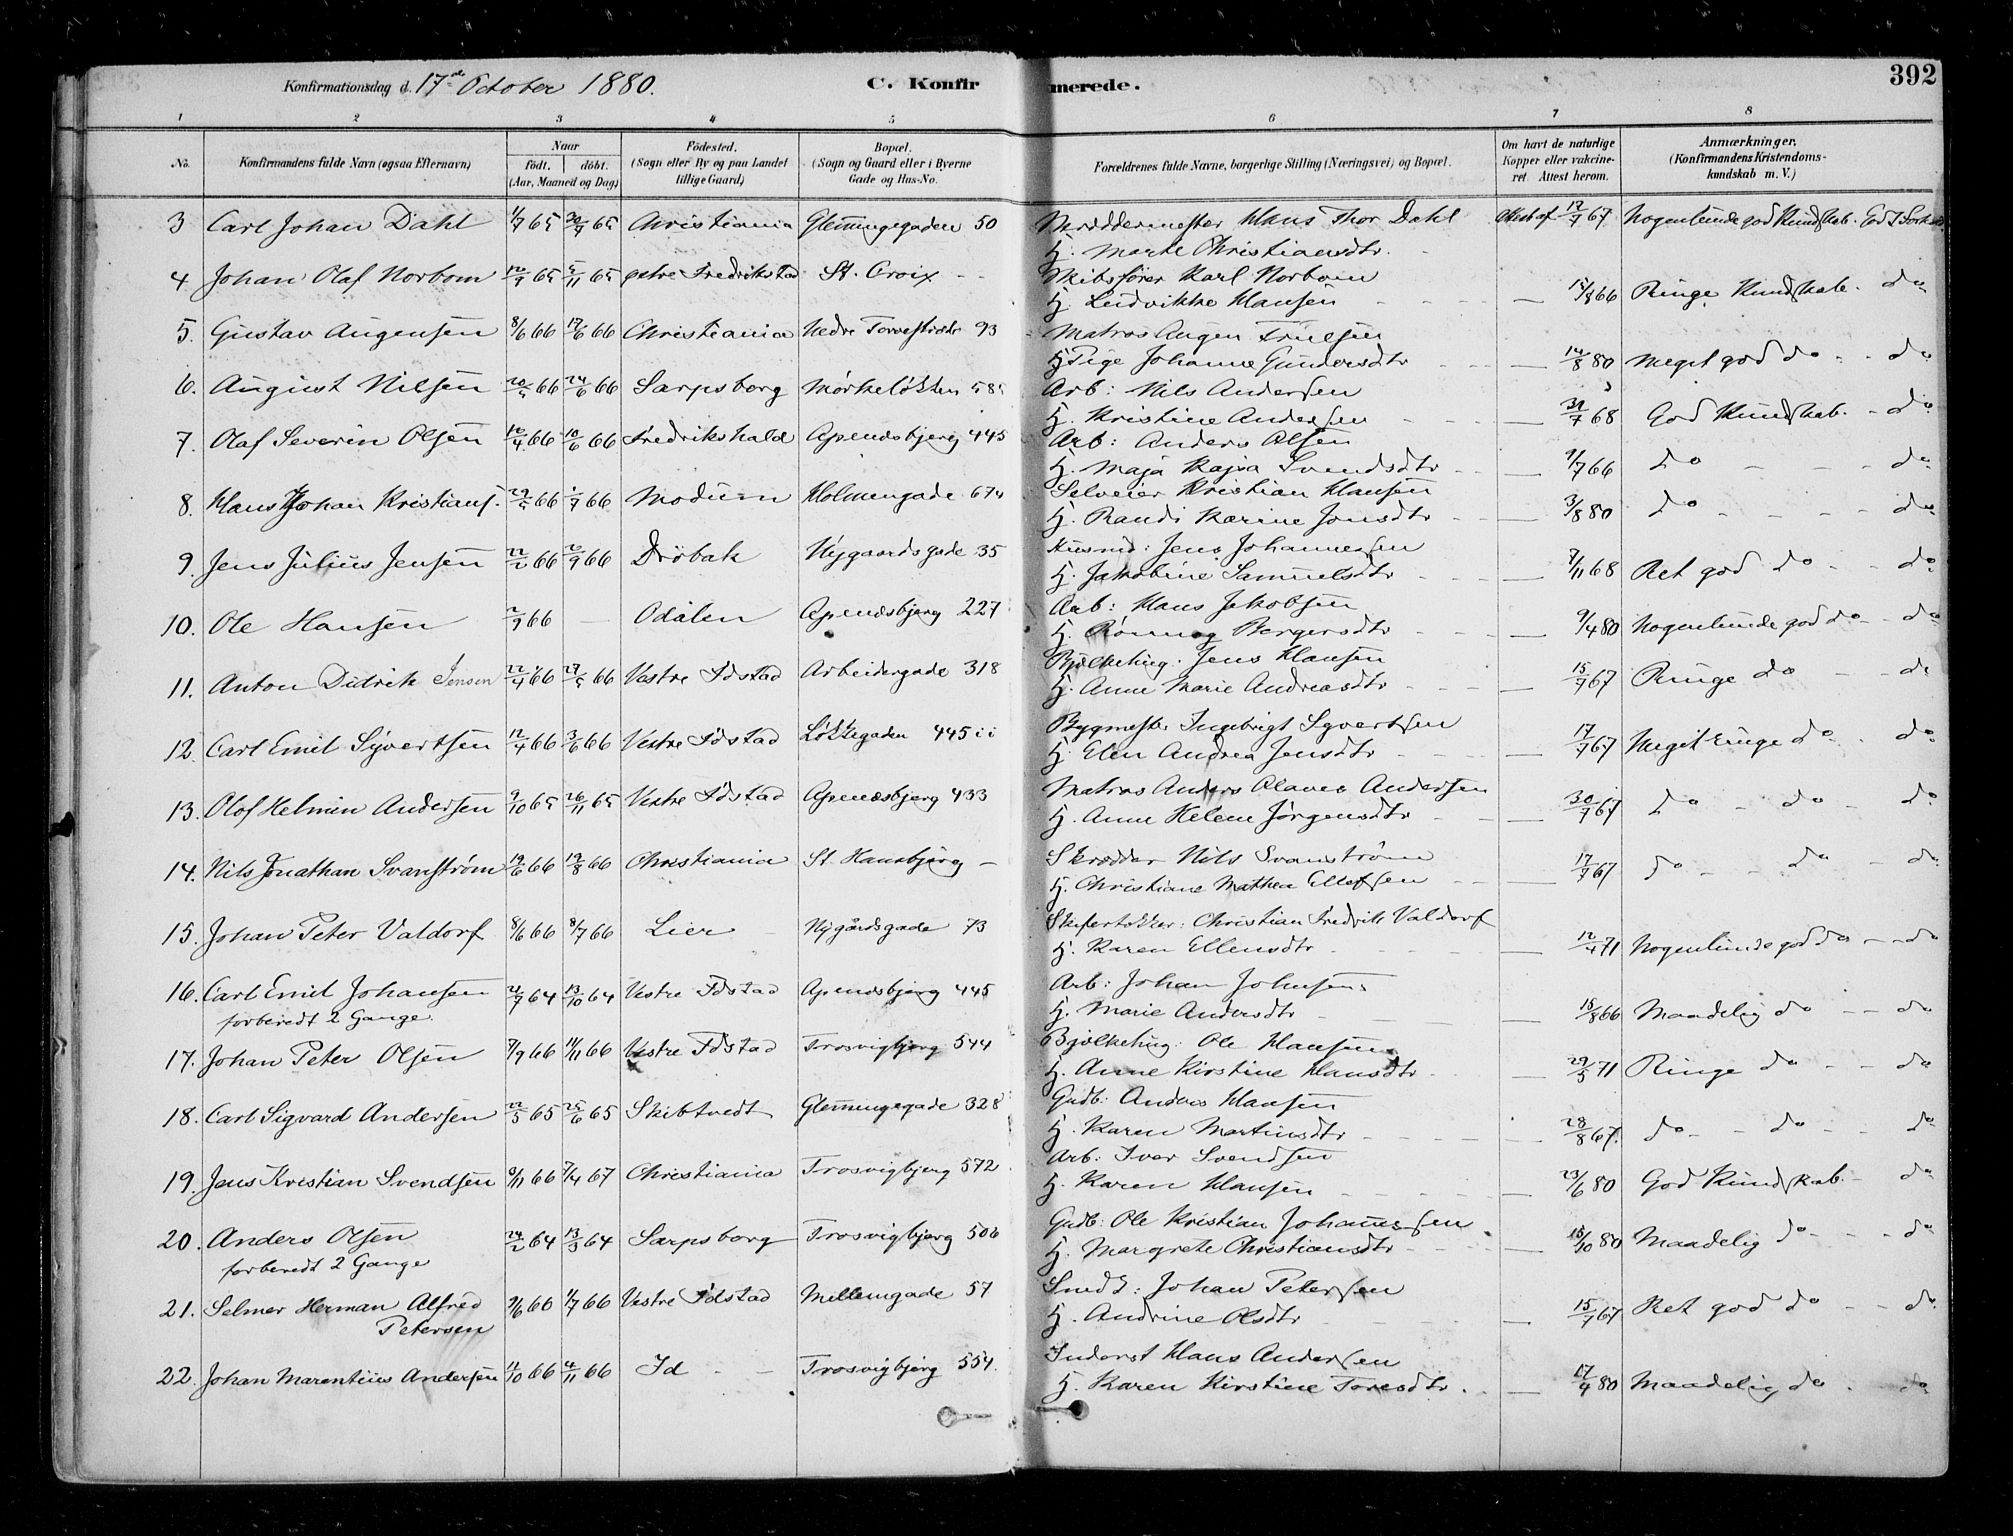 Konfirmationsdag d. 17de October 1880. C. Konfirmerede. 392
1 2 3 4 5 6 7 8
No. Konfirmandens fulde Navn (ogsaa Efternavn) Naar født. døbt. (Aar, Maaned og Dag) Fødested. (Sogn eller By og paa Landet tillige Gaard) Bopæl. (Sogn og Gaard eller i Byerne Gade og Hus-No. Forældrenes fulde Navne, borgerlige Stilling (Næringsvei) og Bopæl. Om havt de naturlige Kopper eller vakcineret Attest herom. Anmærkninger. (Konfirmandens Kristendomskundskab m. V.)
3 Carl Johan Dahl 1/7 65 30/7 65 Christiania Glemmingegaden 50 Hans Thor Dahl Attest af 12/7 67 Nogenlunde god Kundskab. God Forhold
Hj. Marte Christiansdtr.
4 Johan Olaf Norbom 12/9 65 5/11 65 østre Fredrikstad St. Croix Skibsfører Karl Norbom
Hj. Ludvikke Hansen 15/8 66 Ringe Kundskab. do
5. Gustav Augensen 8/6 66 17/6 66 Christiania Nedre Torvestræde 93 Matros Augen
Pige Johanne Gundersdtr 14/8 80 Meget god do do
6. August Nilsen 20/5 66 24/6 66 Sarpsborg Mørkeløkken 585 Arb: Nils Andersen
Hj. Kristine Andersen 31/7 68 God Kundskab. do
7. Olaf Severin Olsen 12/4 66 10/6 66 Fredrikshald Apenæsbjerg 445 Arb: Anders Olsen
Hj. Maja Kajsa Svendsdtr 9/7 66 do do
8. Hans Johan Kristians. 29/5 66 1/7 66 Modum Holmengade 674 Selveier Kristian Hansen
Hj. Randi Karine Jonsdtr 3/8 80 do do
9. Jens Julius Jensen 22/2 66 2/9 66 Drøbak Nygaardsgade 35 Husmd: Jens Johannesen
Hj. Jakobine Samuelsdtr 7/11 68 Ret god do do
10. Ole Hansen 2/9 66 — Odalen Apenæsbjerg 227 Arb: Hans Jakobsen
Hj. Rønnog Bergersdtr 9/4 80 Nogenlunde god do do
11. Anton Didrik Jensen 22/4 66 27/5 66 Vestre Fdstad Arbeidergade 318 Bjelkehug. Jens Hansen
Hj. Anne Marie Andreasdtr 15/7 67 Ringe do do
12. Carl Emil Syvertsen 12/4 66 3/6 66 Vestre Fdstad Løkkegaden 445 ii Bygmester Ingebrigt Syvertsen
Hj. Elen Andrea Jensdtr 17/7 67 Meget ringe do do
13. Olof Helmin Andersen 9/10 65 26/11 65 Vestre Fdstad Apenæsbjerg 433 Matros Anders Olaves Andersen
Hj. Anne Helene Jørgensdtr 30/7 67 do do do
14. Nils Jonathan Svanstrøm 19/6 66 19/8 66 Christiania St. Hansbjerg — Skrædder Nils Svanstrøm
Hj. Christiane Mathea Ellefsen 17/7 67 do do do
15. Johan Peter Valdorf 8/6 66 8/7 66 Lier Nygårdsgade 73 Christian Fredrik Valdorf
Hj. Karen Ellensdtr 12/4 71 Nogenlunde god do do
16. Carl Emil Johansen 21/7 64 13/10 64 Vestre Fdstad Apenæsbjerg 445 Arb: Johan Johnsen
forberedt 2 Gange. Hj. Marie Andersdtr 15/8 66 Maadelig do do
17. Johan Peter Olsen 7/9 66 11/11 66 Vestre Fdstad Trosvigbjerg 544 Bjelkehug: Ole Hansen
Hj. Anne Kirstine Hansdtr 29/5 71 Ringe do do
18. Carl Sigvard Andersen 22/5 65 25/6 65 Skibtvedt Glemmingegade 328 Gudb: Anders Hansen
Hj. Karen Martinsdtr 28/8 67. do do do
19. Jens Kristian Svendsen 9/11 66 7/4 67 Christiania Trosvigbjerg 572 Arb: Iver Svendsen
Hj. Karen Hansen 23/6 80 God Kundskab. do
20. Anders Olsen 24/2 64 13/3 64 Sarpsborg Trosvigbjerg 506 Gudb: Ole Kristian Johannesen
forberedt 2 Gange Hj. Margrete Christiansdtr 15/10 80 Maadelig do do
21. Selmer Herman Alfred 9/6 66 1/7 66 Vestre Fdstad Mellemgade 57 Smed: Johan Petersen
Petersen Hj. Andrine Olsdtr 15/7 67 Ret god do do
22. Johan Marentius Andersen 11/10 66 4/11 66 Id Trosvigbjerg 554. Inderst Hans Andersen
Hj. Karen Kirstine Toresdtr. 17/4 80 Maadelig do do